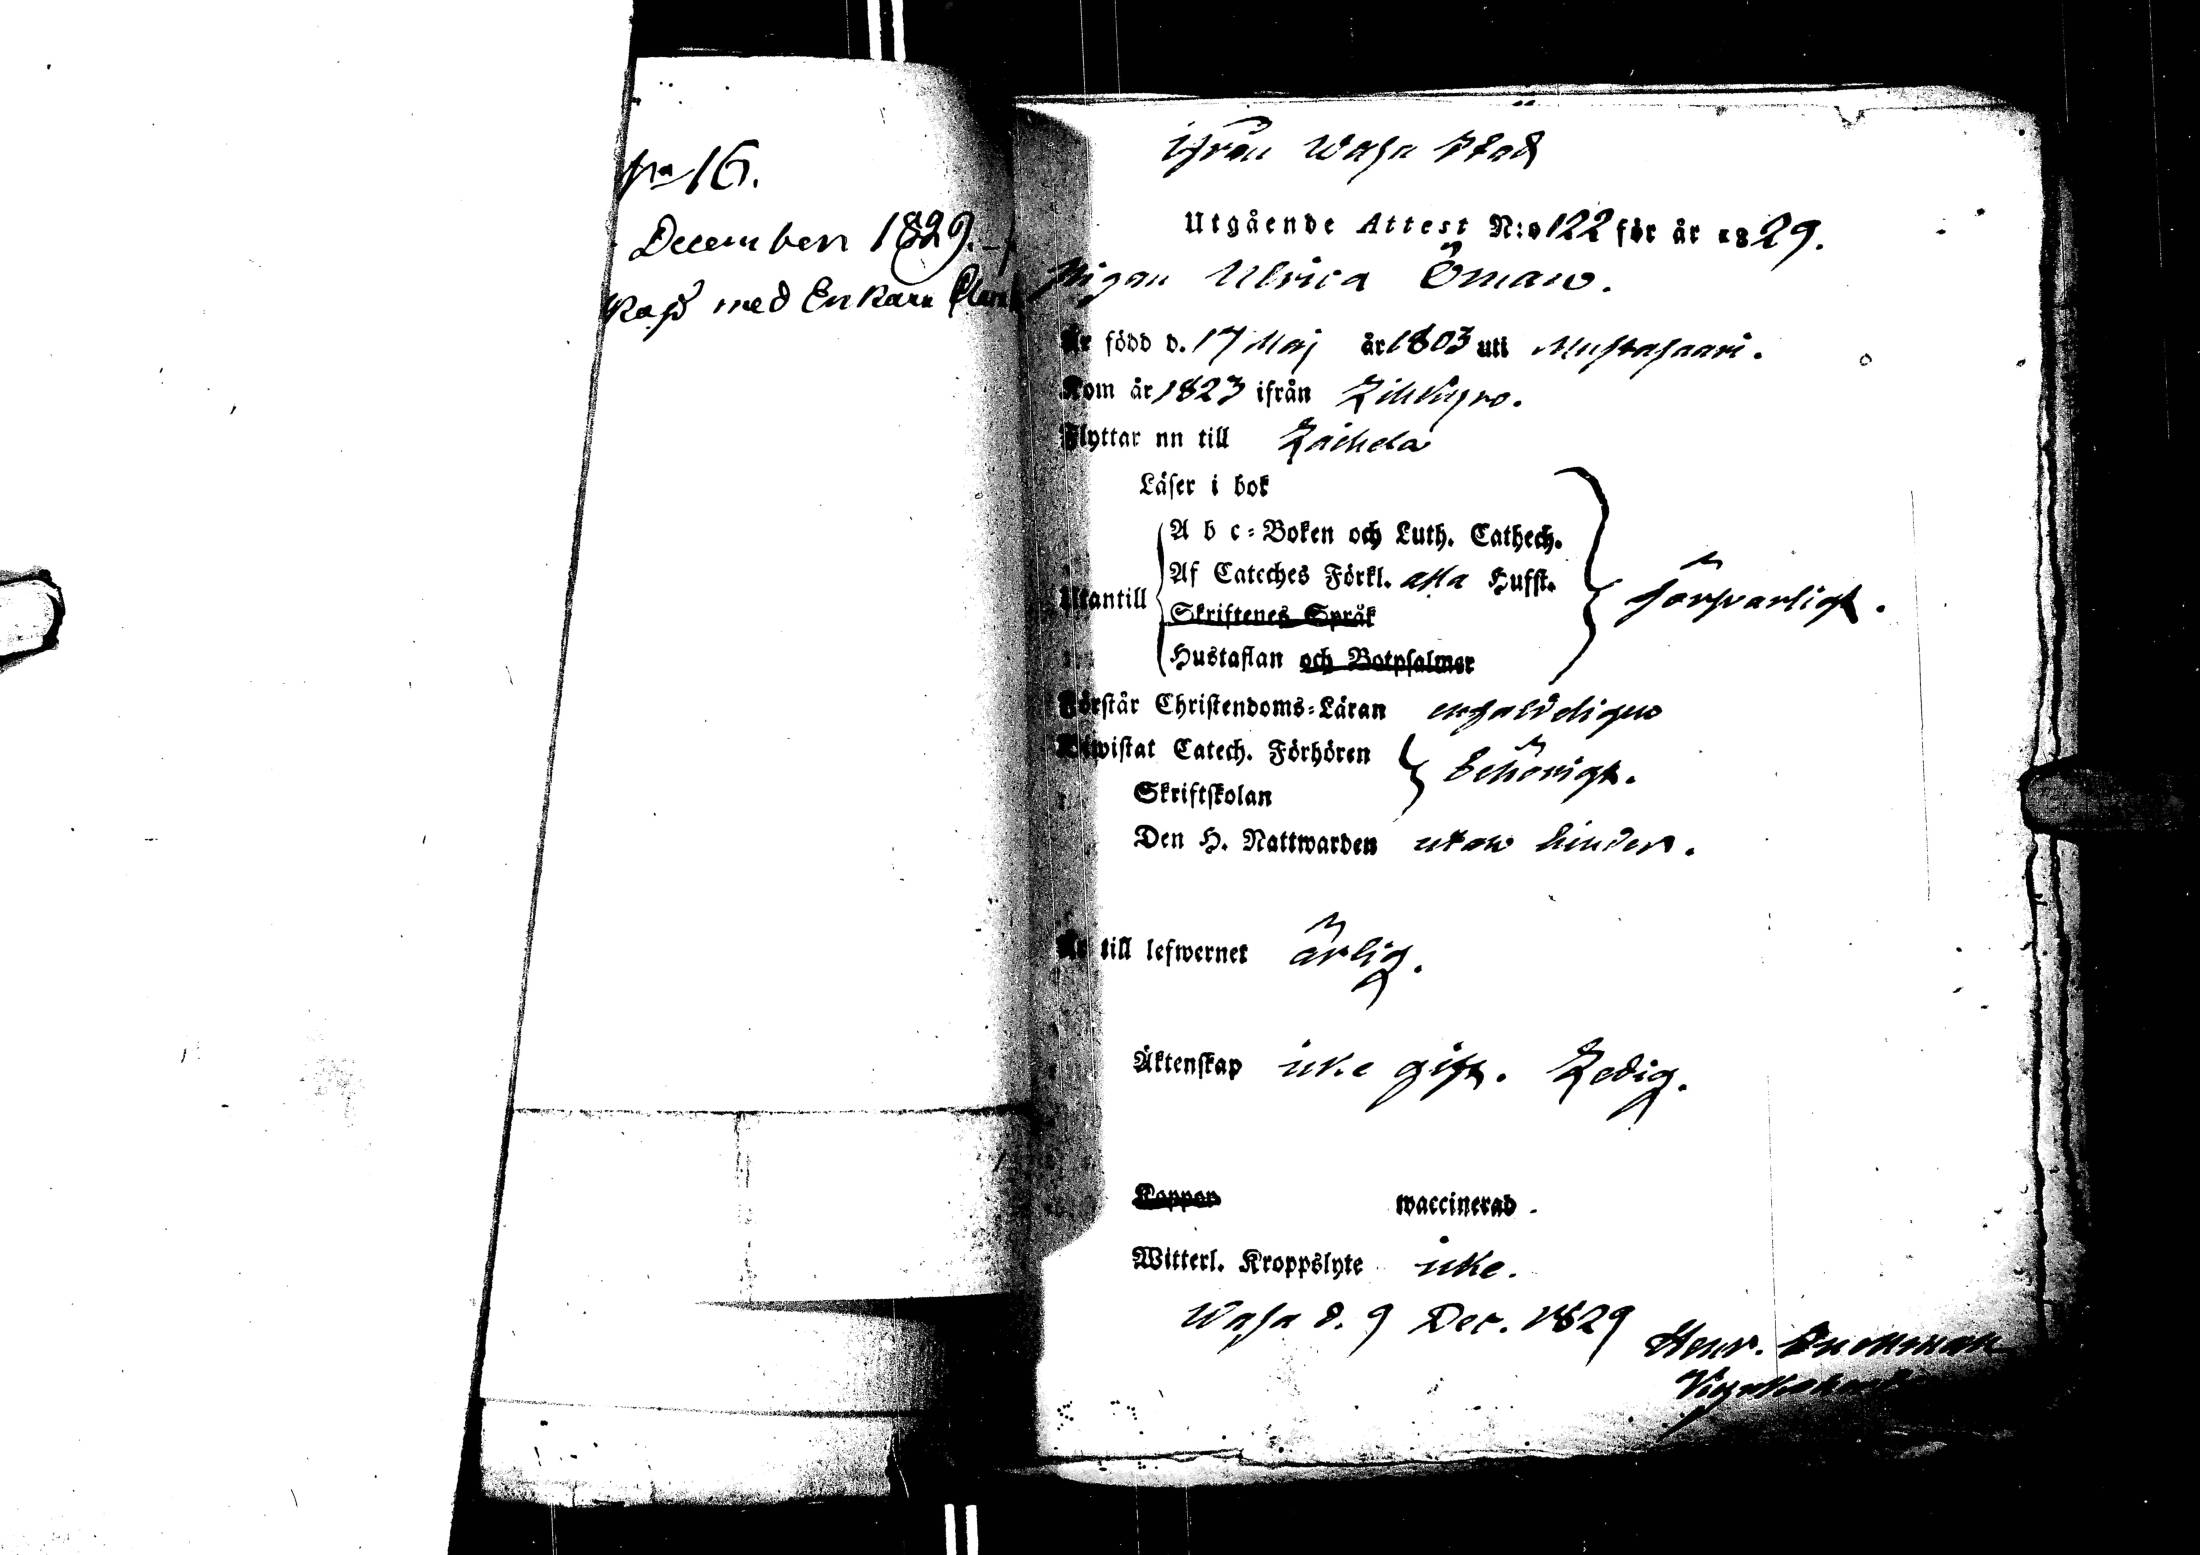 No 16.
December 1829.
skap med Enkan
ifrån Wasa Stad
Utgående Attest N:o 122 för år 1829.
Pigan Ulrica Öman.
Är född d. 17 Maj år 1803 uti Mustasaari.
Kom år 1823 ifrån Lillkyro.
Flyttar nu till Laihela
Läser i bok
A b c=Boken och Luth. Cathech.
Af Cateches Förkl. alla Husst.
Utantill försvarligt.
Skriftenes Språk
Hustaflan och Botpsalmer
Förstår Christendoms=Läran enfaldigen
Biwistat Catech. Förhören
behörigt.
Skriftskolan
Den H. Nattwarden utan hinder.
Är till lefwernet ärlig.
Äktenskap icke gift. Ledig.
Koppor waccinerad.
Witterl. Kroppslyte icke.
Wasa d. 9 Dec. 1829
Henr.